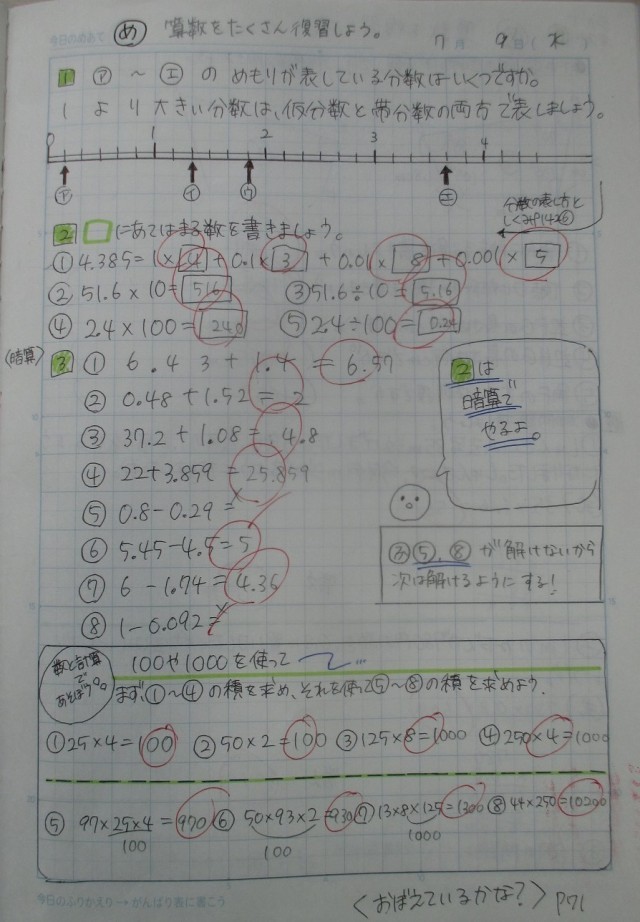 め 算数をたくさん復習しよう。 7月9日(木)
1 ㋐～㋓のめもりが表している分数はいくつですか。
1より大きい分数は、仮分数と帯分数の両方で表しましょう。
0 1 2 3 4
㋐ ㋑ ㋒ ㋓
分数の表し方と
2 □にあてはまる数を書きましょう。
①4.385=1×4+0.1×3+0.01×8+0.001×5
②51.6×10=516 ③51.6÷10=5.16
④2.4×100=240 ⑤2.4÷100=0.24
〈暗算〉 3 ① 6.43+1.4=6.57
② 0.48+1.52=2
③ 37.2+1.08=4.8
④ 22+3.859=25.859
⑤ 0.8-0.29=
⑥ 5.45-4.5=5
⑦ 6-1.74=4.36
⑧ 1-0.092=
2は
暗算で
やるよ。
③⑤,⑧が解けないから
次は解けるようにする!
数と計算
で
あそぼう。
100や1000を使って
まず、①～④の積を求め、それを使って⑤～⑧の積を求めよう.
①25×4=100 ②50×2=100 ③125×8=1000 ④250×4=1000
⑤ 97×25×4=970 ⑥ 50×93×2=930 ⑦ 13×8×125=1300 ⑧ 44×250=10200
100 100 1000
今日のふりかえり→がんばり表に書こう
〈おぼえているかな?〉P71